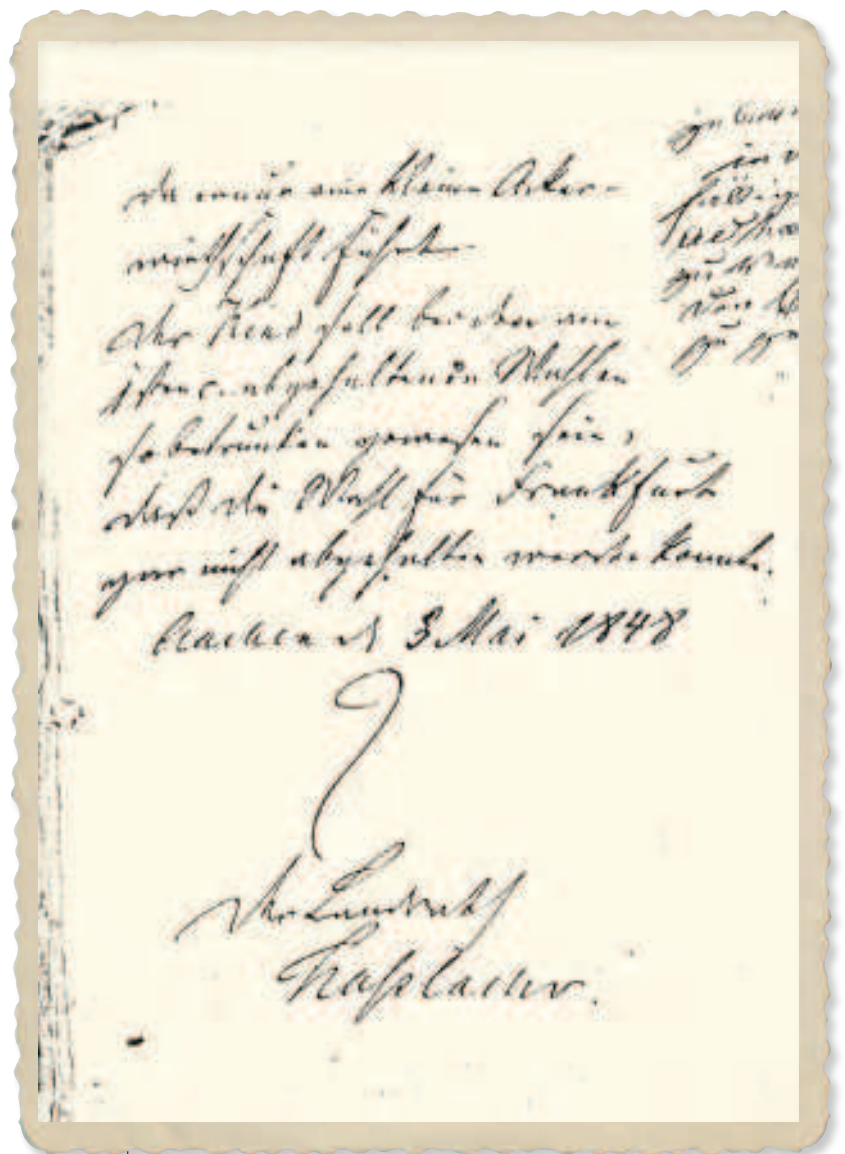 da nur eine kleine Acker-
wirthschaft führt
Der soll bei den am
abgehaltenen Wahlen
so betrunken gewesen sein,
daß die Wahl für Frankfurt
gar nicht abgehalten werden konnte.
Aachen d 3 Mai 1848
Der Landrath
Hasslacher.